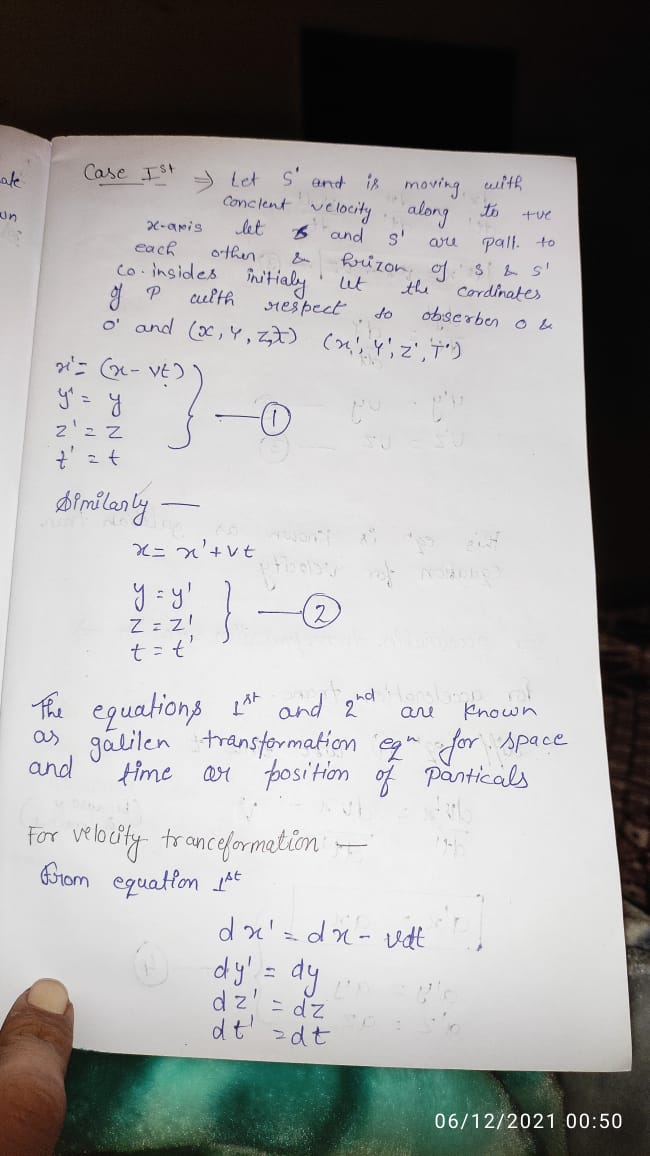 ate
un
Case Ist ⇒ Let S' and is moving with
conclent velocity along to +ve
x-axis let S and S' are pall. to
each other & horizon of S & S'
co-insides initialy let the cordinates
of P with respect to observer o &
o' and (x, y, z, t) (x', y', z', T')
x' = (x - vt)
y' = y
z' = z
t' = t
— 1
Similarly —
x = x' + vt
y = y'
z = z'
t = t'
— 2
The equations 1st and 2nd are known
as galilen transformation eqn for space
and time or position of Particals
For velocity tranceformation —
From equation 1st
dx' = dx - vdt
dy' = dy
dz' = dz
dt' = dt
06/12/2021 00:50